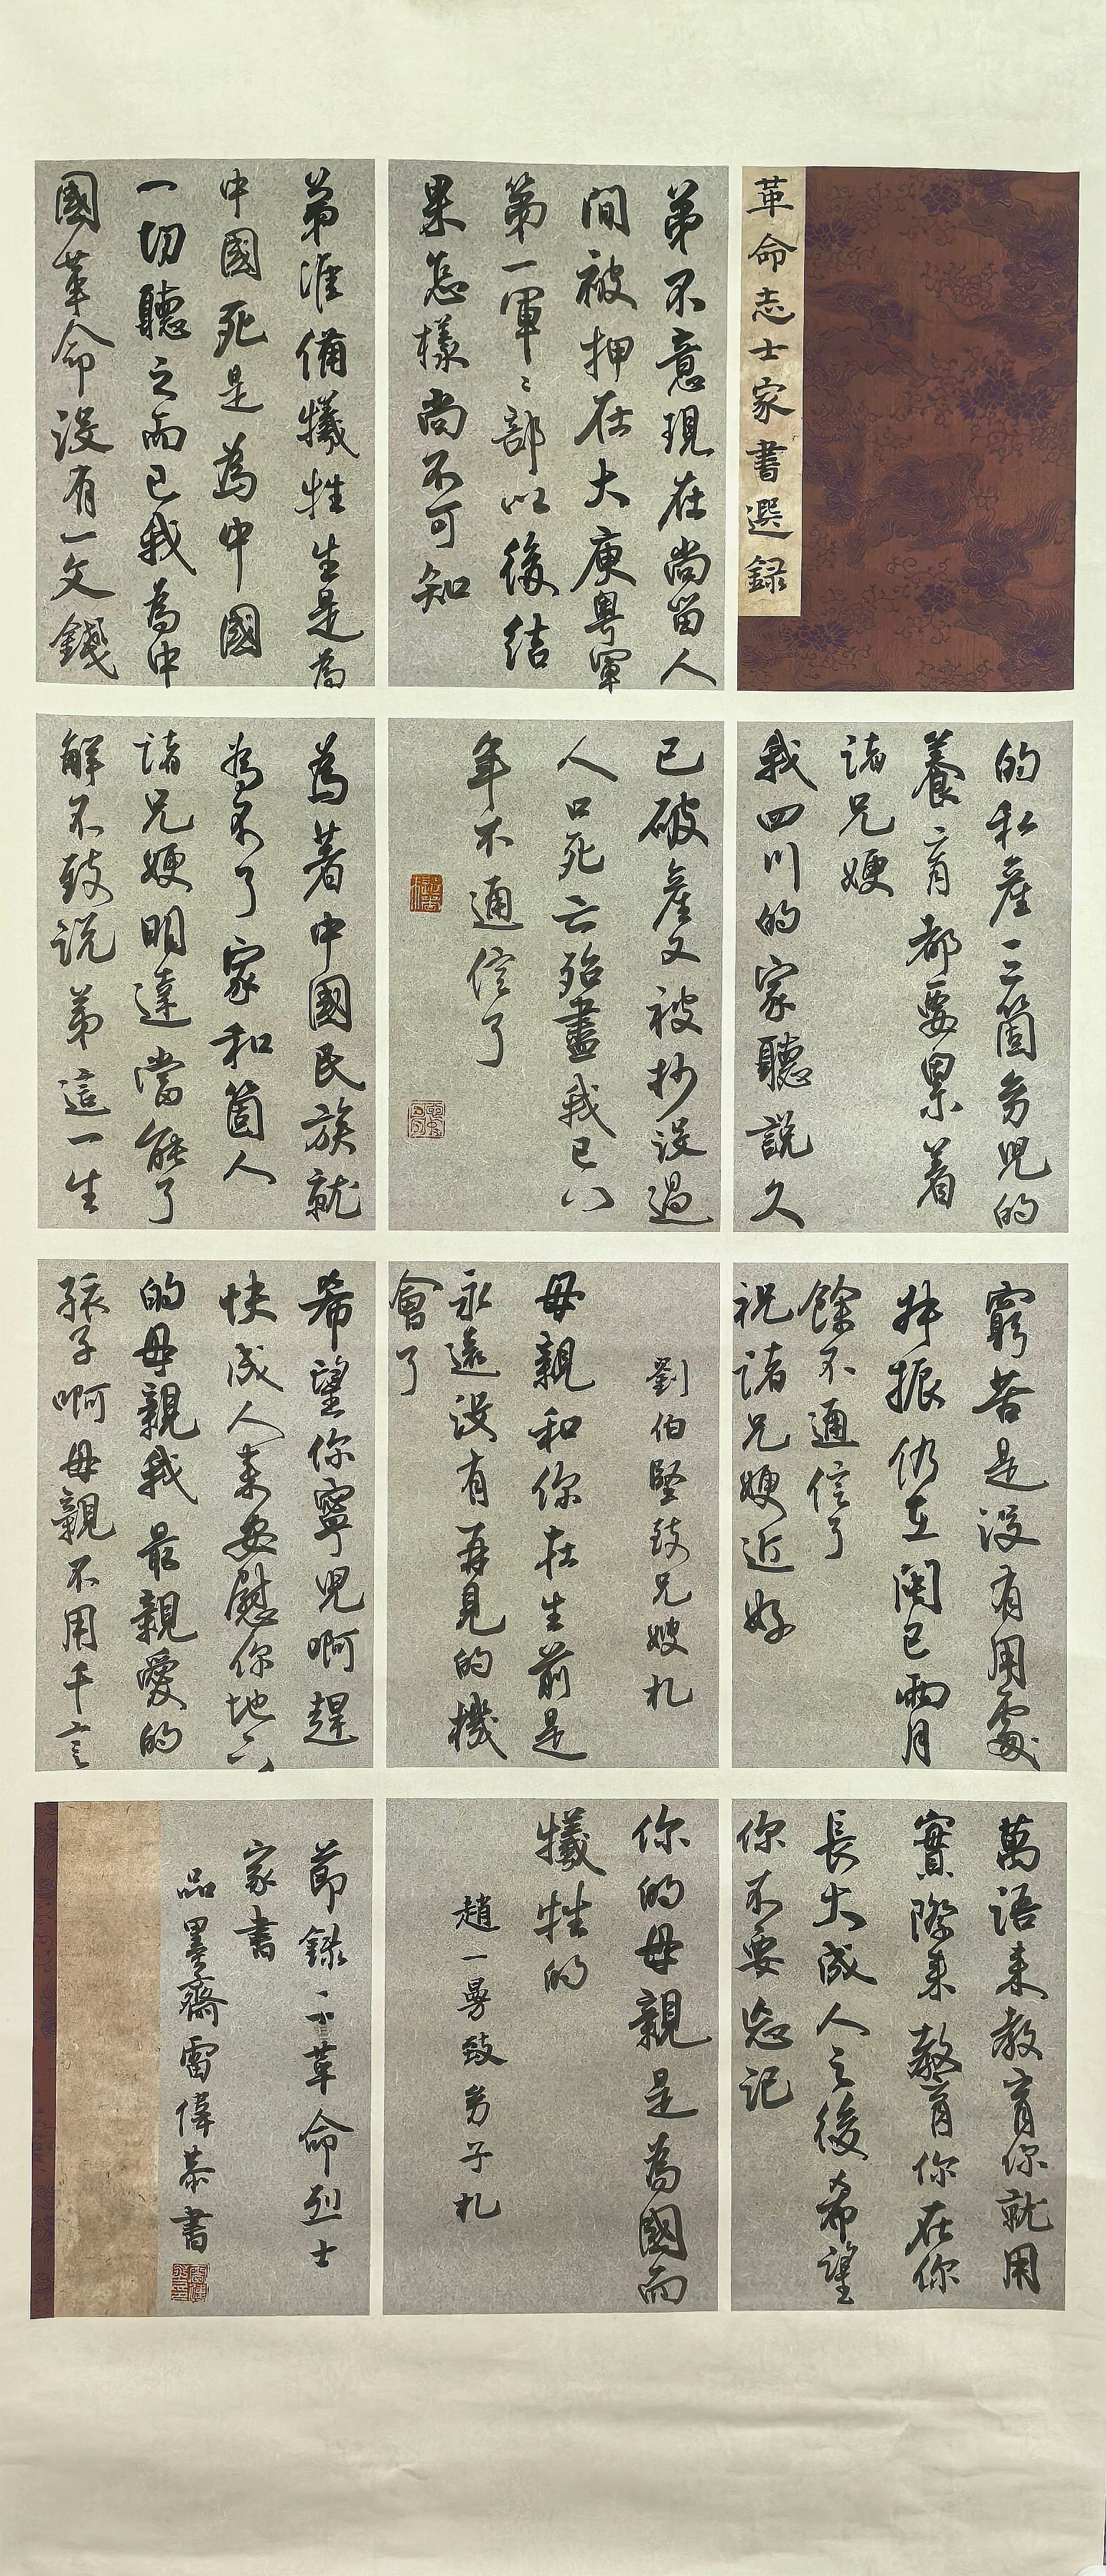 革命志士家書選録
弟不意現在尚留人
間被押在大庾粵軍
第一軍々部以後結
果怎樣尚不可知
弟準備犧牲生是為
中國死是為中國
一切聽之而已我為中
國革命沒有一文錢
的私產三箇男兒的
養育都要累着
諸兄嫂
我四川的家聽説久
已破產又被抄沒過
人口死亡殆盡我已八
年不通信了
為着中國民族就
為不了家和箇人
諸兄嫂明達當能了
解不致説弟這一生
窮苦是沒有用處
振仍在閩已兩月
餘不通信了
祝諸兄嫂近好
劉伯堅致兄嫂札
母親和你在生前是
永遠沒有再見的機
會了
希望你寧兒啊趕
快成人來安慰你地下
的母親我最親愛的
孩子啊母親不用千言
萬語來教育你就用
實際來教育你在你
長大成人之後希望
你不要忘記
你的母親是為國而
犧牲的
趙一曼致男子札
節錄革命烈士
家書
品墨齋雷偉恭書